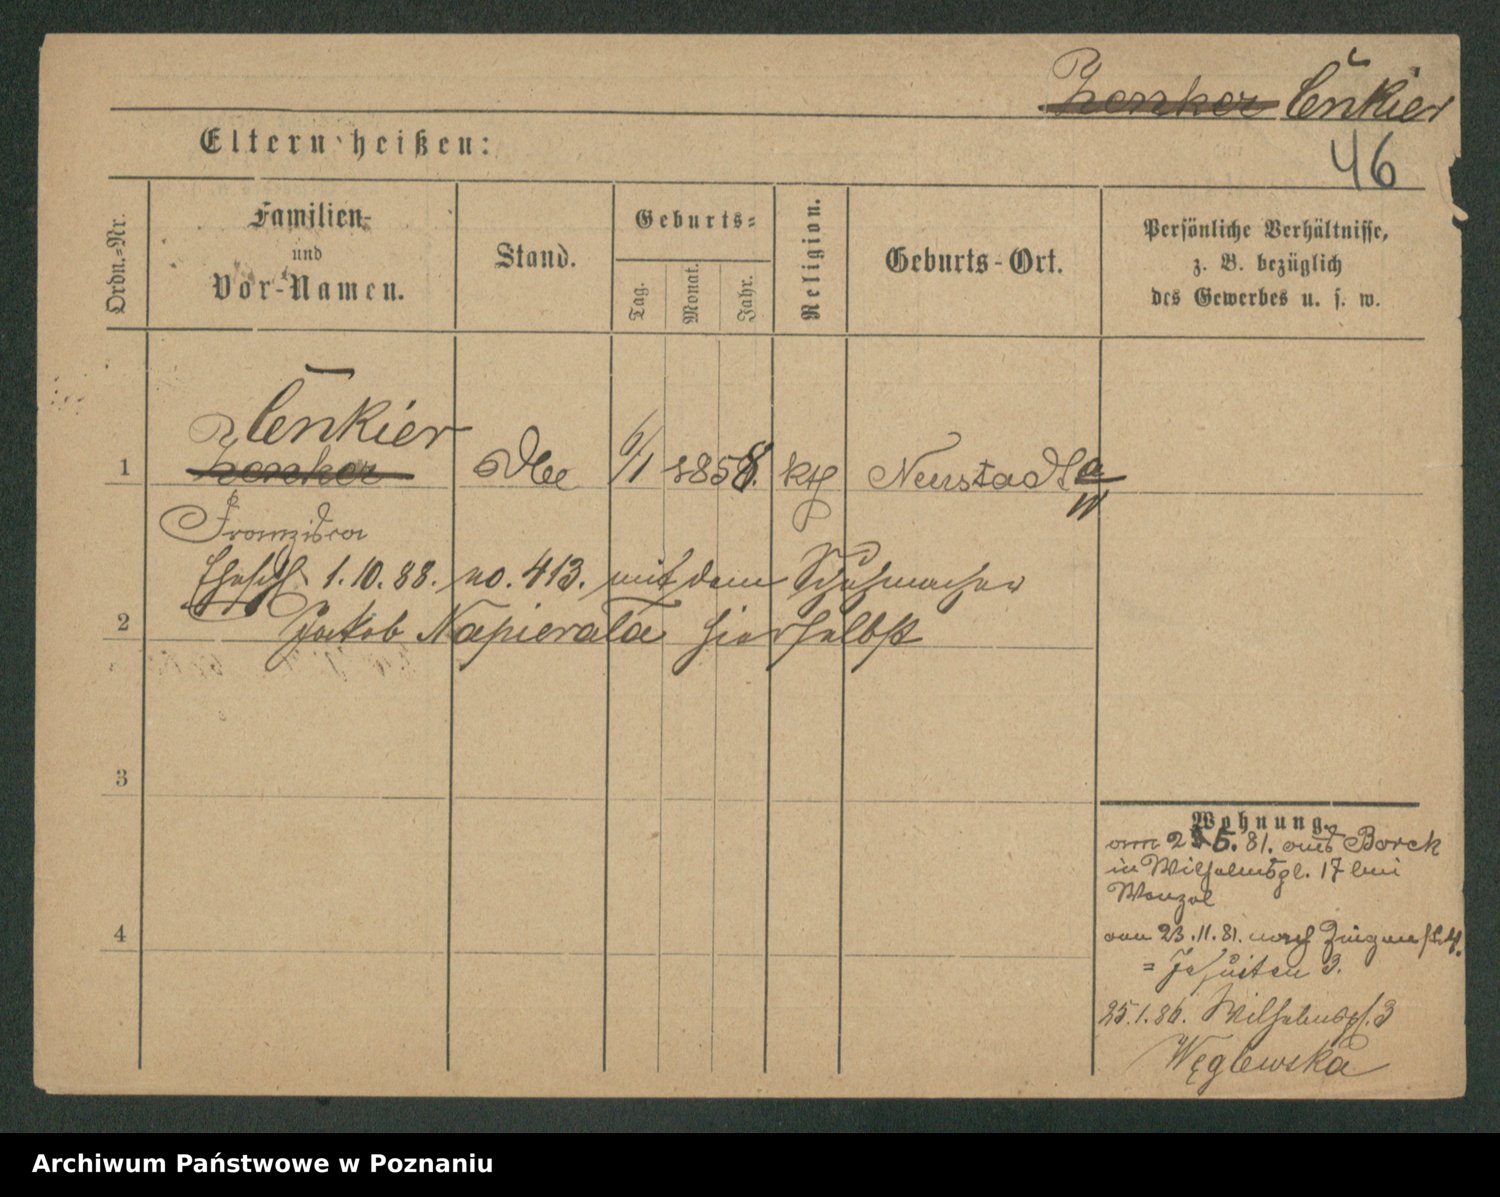 Zenker Cenkier
46
Eltern heißen:
Ordn.-Nr.
Familien-
und
Vor-Namen.
Stand.
Geburts-
Tag.
Monat.
Jahr.
Religion.
Geburts-Ort.
Persönliche Verhältnisse,
z. B. bezüglich
des Gewerbes u. s. w.
Cenkier
1 Zenker 6/1 1858. kth Neustadt a/W
Franziska
Ehesch. 1.10.88. no. 413. mit dem Schuhmacher
2 Jakob Napierala hierselbst
3
4
Wohnung.
5. 81. aus Borck
in Wilhelmspl. 17 bei
Wenzel
23.11.81. nach
= Jesuiten 3.
25.1.86. Wilhelmspl. 3
Węglewska
Archiwum Państwowe w Poznaniu